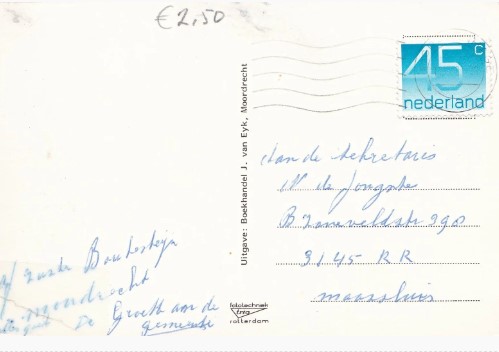 €2,50
45 c
nederland
Uitgave: Boekhandel J. van Eyk, Moordrecht
Aan de Sekretaris
de Jongste
3145 RR
maassluis
zuster
moordrecht
De Groeten aan de
gemeente
fototechniek
rotterdam